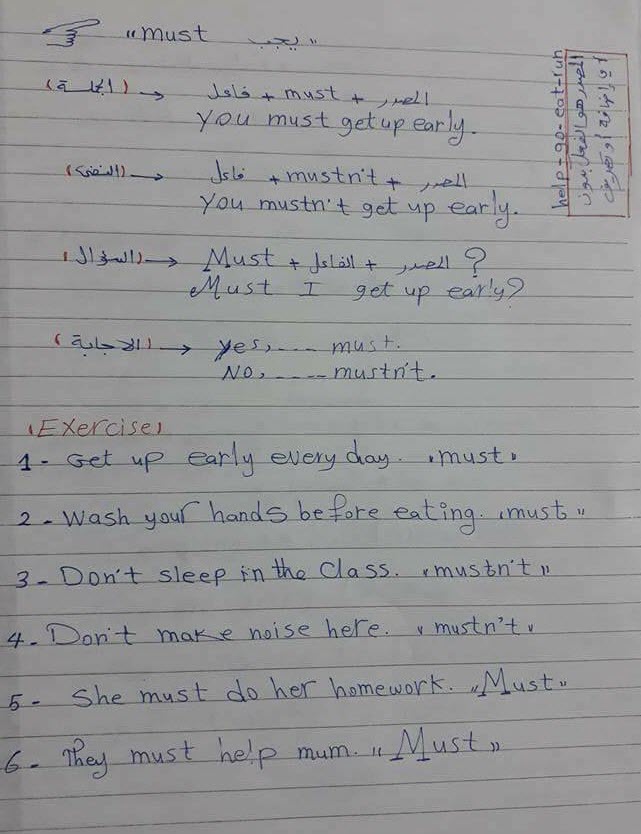 "must يجب"
(الجملة) → فاعل + must + المصدر
You must get up early.
(النفى) → فاعل + mustn't + المصدر
You mustn't get up early.
(السؤال) → Must + الفاعل + المصدر ?
Must I get up early?
(الاجابة) → Yes, ---- must.
No, ---- mustn't.
help - go - eat - run
المصدر هو الفعل بدون
أي إضافة أو تصريف
(Exercise)
1 - Get up early every day. "must"
2 - Wash your hands before eating. "must"
3 - Don't sleep in the class. "mustn't"
4 - Don't make noise here. "mustn't"
5 - She must do her homework. "Must"
6 - They must help mum. "Must"